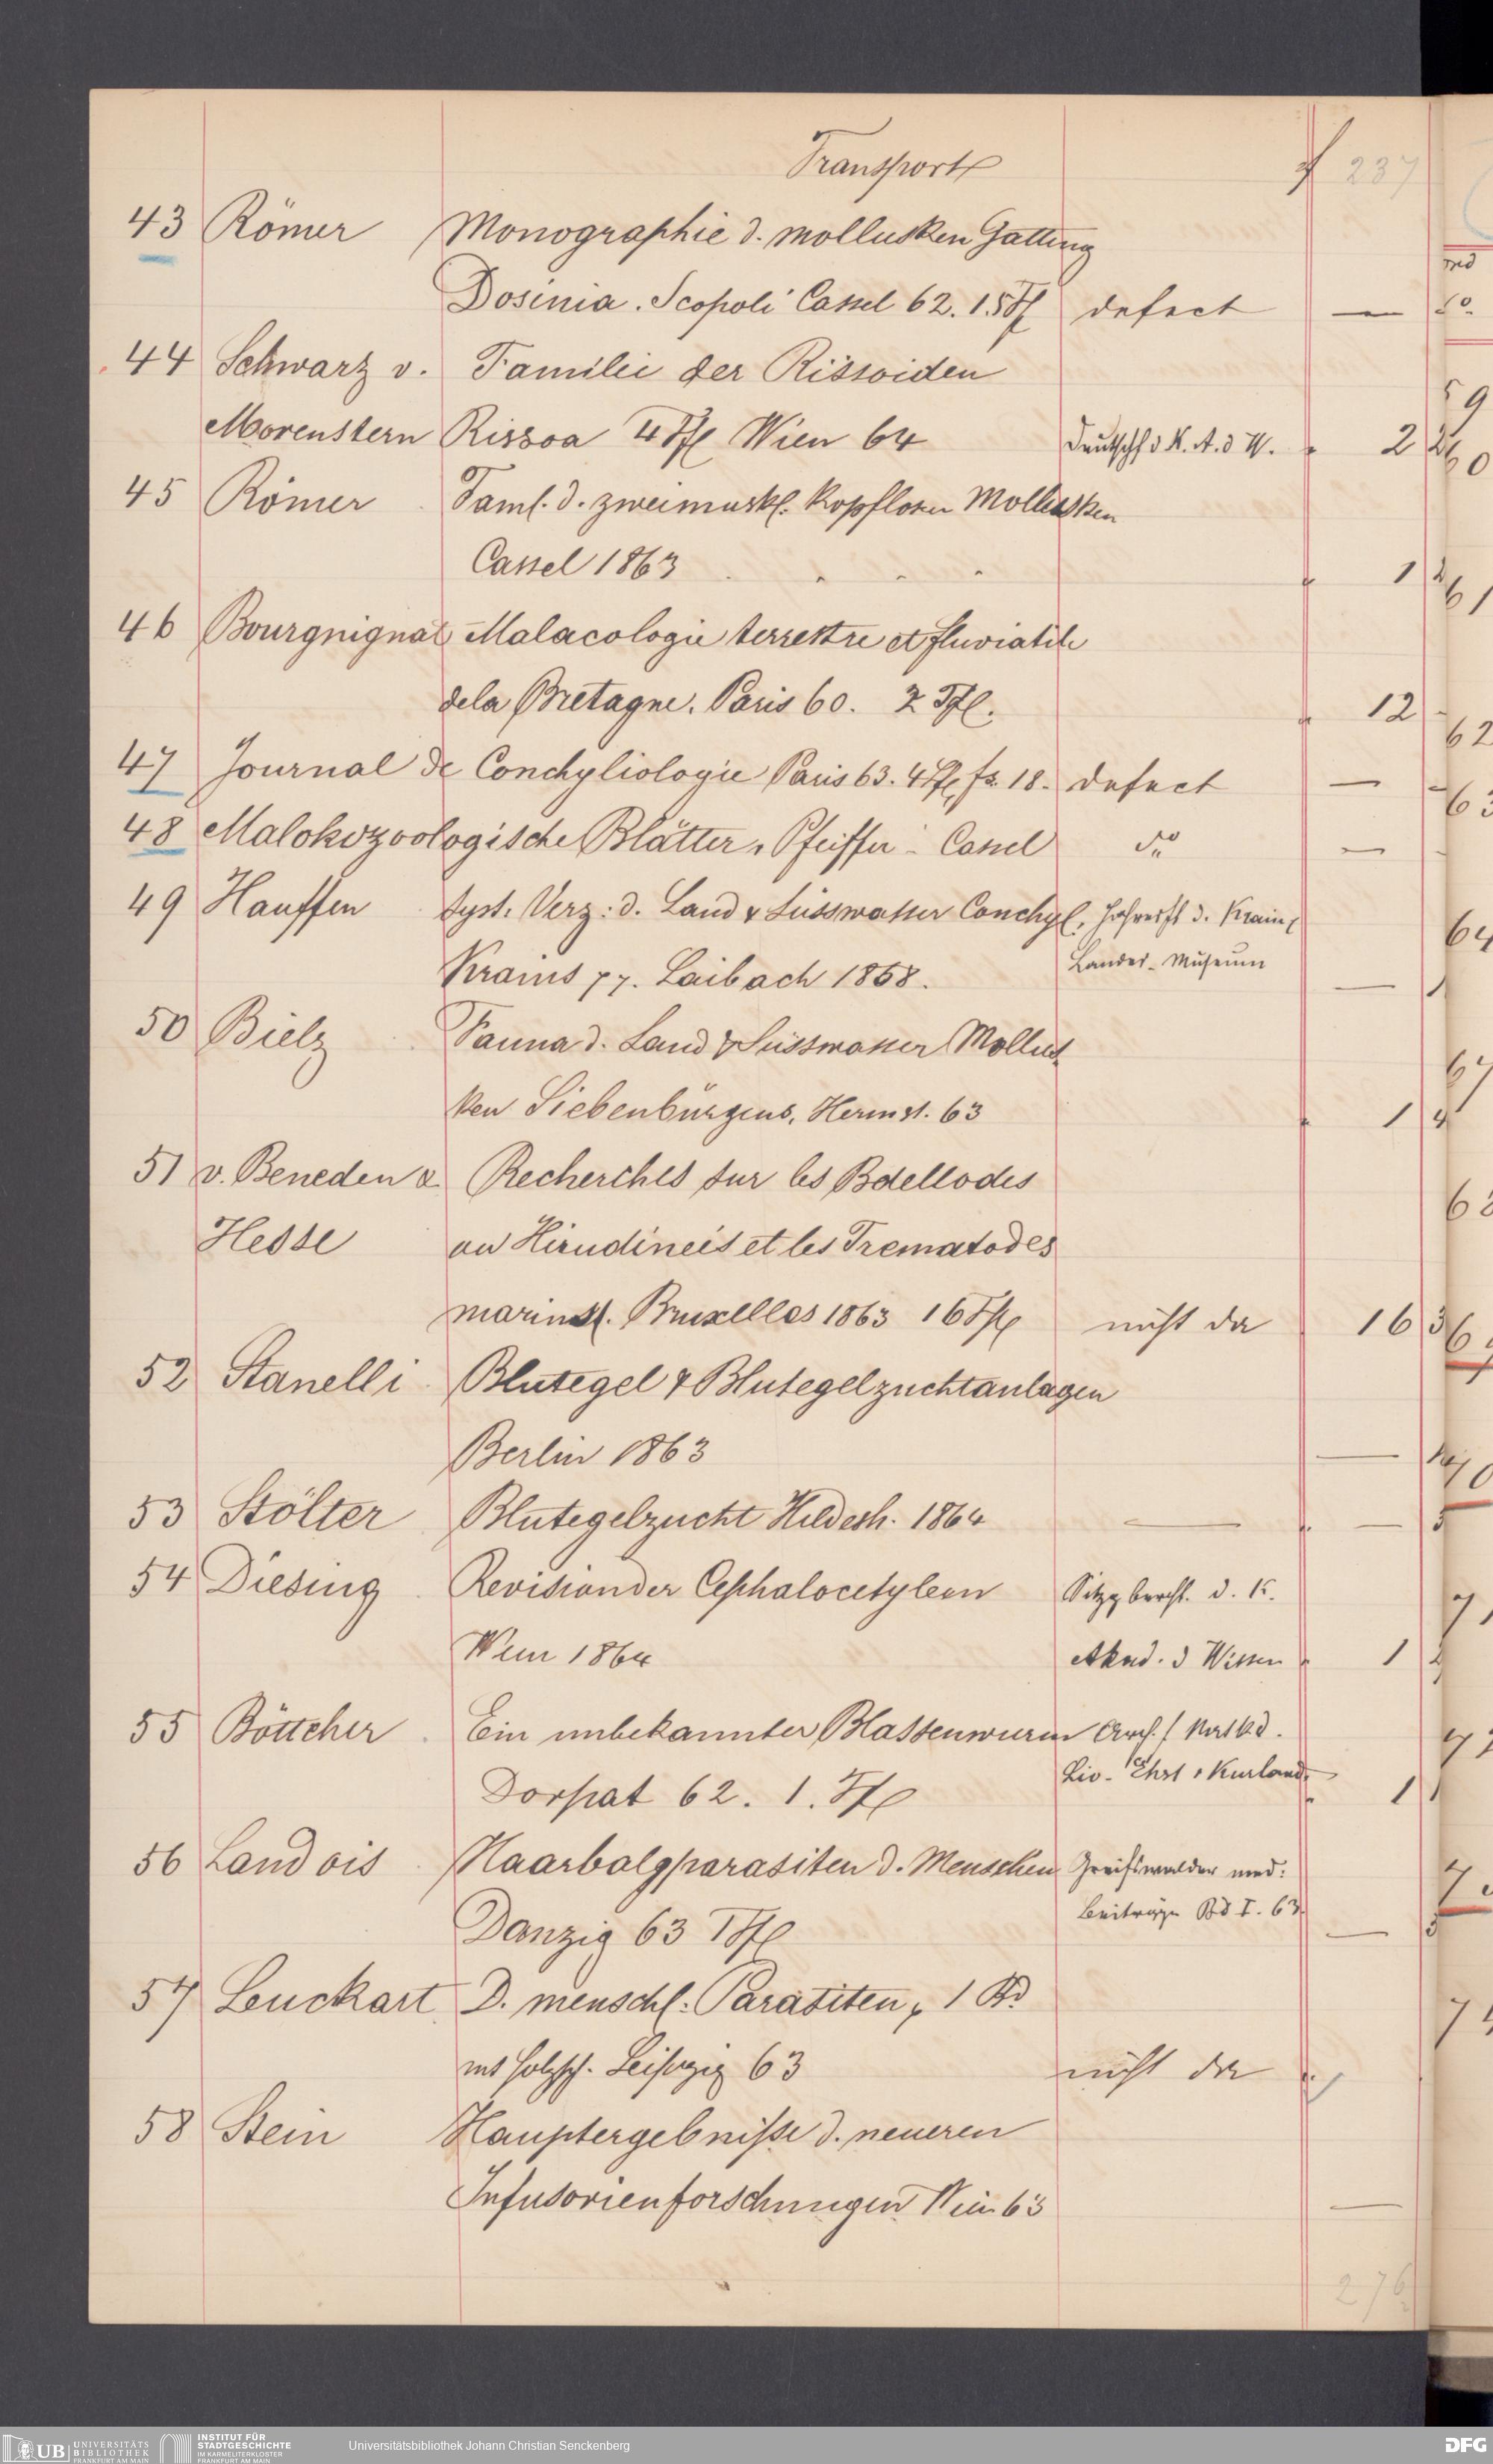 Transport f 237
43 Römer Monographie d. Mollusken Gattung
Dosinia. Scopoli Cassel 62. 15 Tfl defect —
44 Schwarz v. Familie der Rissoiden
Morenstern Rissoa 4 Tfl Wien 64 Denkschf d K. A. d W. f 2
45 Römer Faml. d. zweimuskl. kopflosen Mollusken
Cassel 1863 f 1
46 Bourgnignat Malacologie terrestre et fluviatile
de la Bretagne. Paris 60. 2 Tfl. f 12
47 Journal de Conchyliologie Paris 63. 4 Tfl, fs. 18. defect —
48 Malokozoologische Blätter, Pfeiffer - Cassel do —
49 Hauffen Syst. Verz: d. Land & Süsswasser Conchyl. Jahresft d. Krain
Krains 77. Laibach 1858. Landes-Museum —
50 Bielz Fauna d. Land & Süsswasser Mollus
ken Siebenbürgens, Hermst. 63 f 1
51 v. Beneden & Recherches sur les Bdellodes
Hesse ou Hirudineis et les Trematodes
marins. Bruxelles 1863 16 Tfl nicht da 16
52 Stanelli Blutegel & Blutegelzuchtanlagen
Berlin 1863 —
53 Stölter Blutegelzucht Hildesh. 1864 — f —
54 Diesing Revision der Cephalocotyleen Sitzgbercht. d. K.
Wien 1864 Akad. d Wissen f 1
55 Böttcher Ein unbekannter Blassenwurm Arch. f Natkd.
Dorpat 62. 1. Tfl Liv- Ehst & Kurland f 1
56 Landois Haarbalgparasiten d. Menschen Greifswalder med:
Danzig 63 1 Tfl Beiträge Bd I. 63 —
57 Leuckart D. menschl. Parasiten, 1 Bd
mt Holzsch. Leipzig 63 nicht da f
58 Stein Hauptergebnisse d. neueren
Infusorienforschungen Wien 63 —
276
UB UNIVERSITÄTS
BIBLIOTHEK
FRANKFURT AM MAIN
INSTITUT FÜR
STADTGESCHICHTE
IM KARMELITERKLOSTER
FRANKFURT AM MAIN
Universitätsbibliothek Johann Christian Senckenberg
DFG